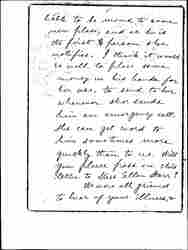 liable to be moved to some
new place, and he is
the first person she
notifies. I think it would
be well to place some
money in his hands for
her use, to send to her
whenever she sends
him an emergency call.
She can get word to
him sometimes more
quickly than to us. Will
you please pass on this
letter to Miss Ellen Starr?
We are all grieved
to hear of your illness, &